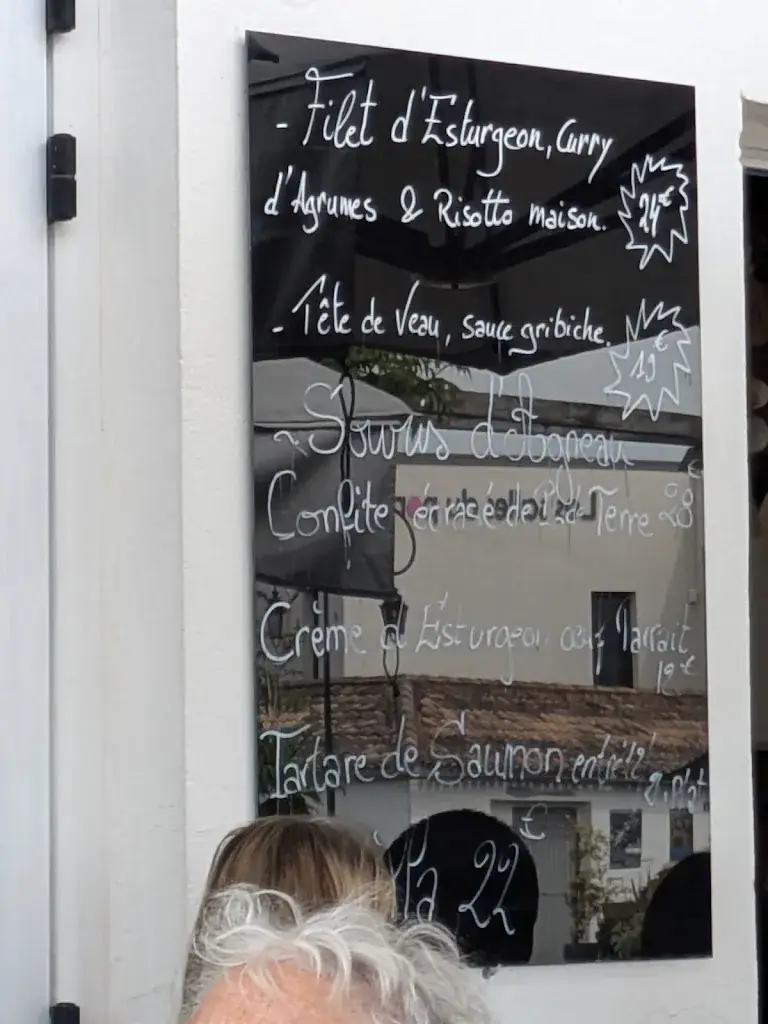 - Filet d'Esturgeon, Curry
d'Agrumes & Risotto maison. 24€
- Tête de Veau, sauce gribiche. 19€
- Souris d'Agneau
Confite écrasé de P. de Terre 28€
Crème d'Esturgeon œuf Parfait
12€
Tartare de Saumon entré 12
€
22